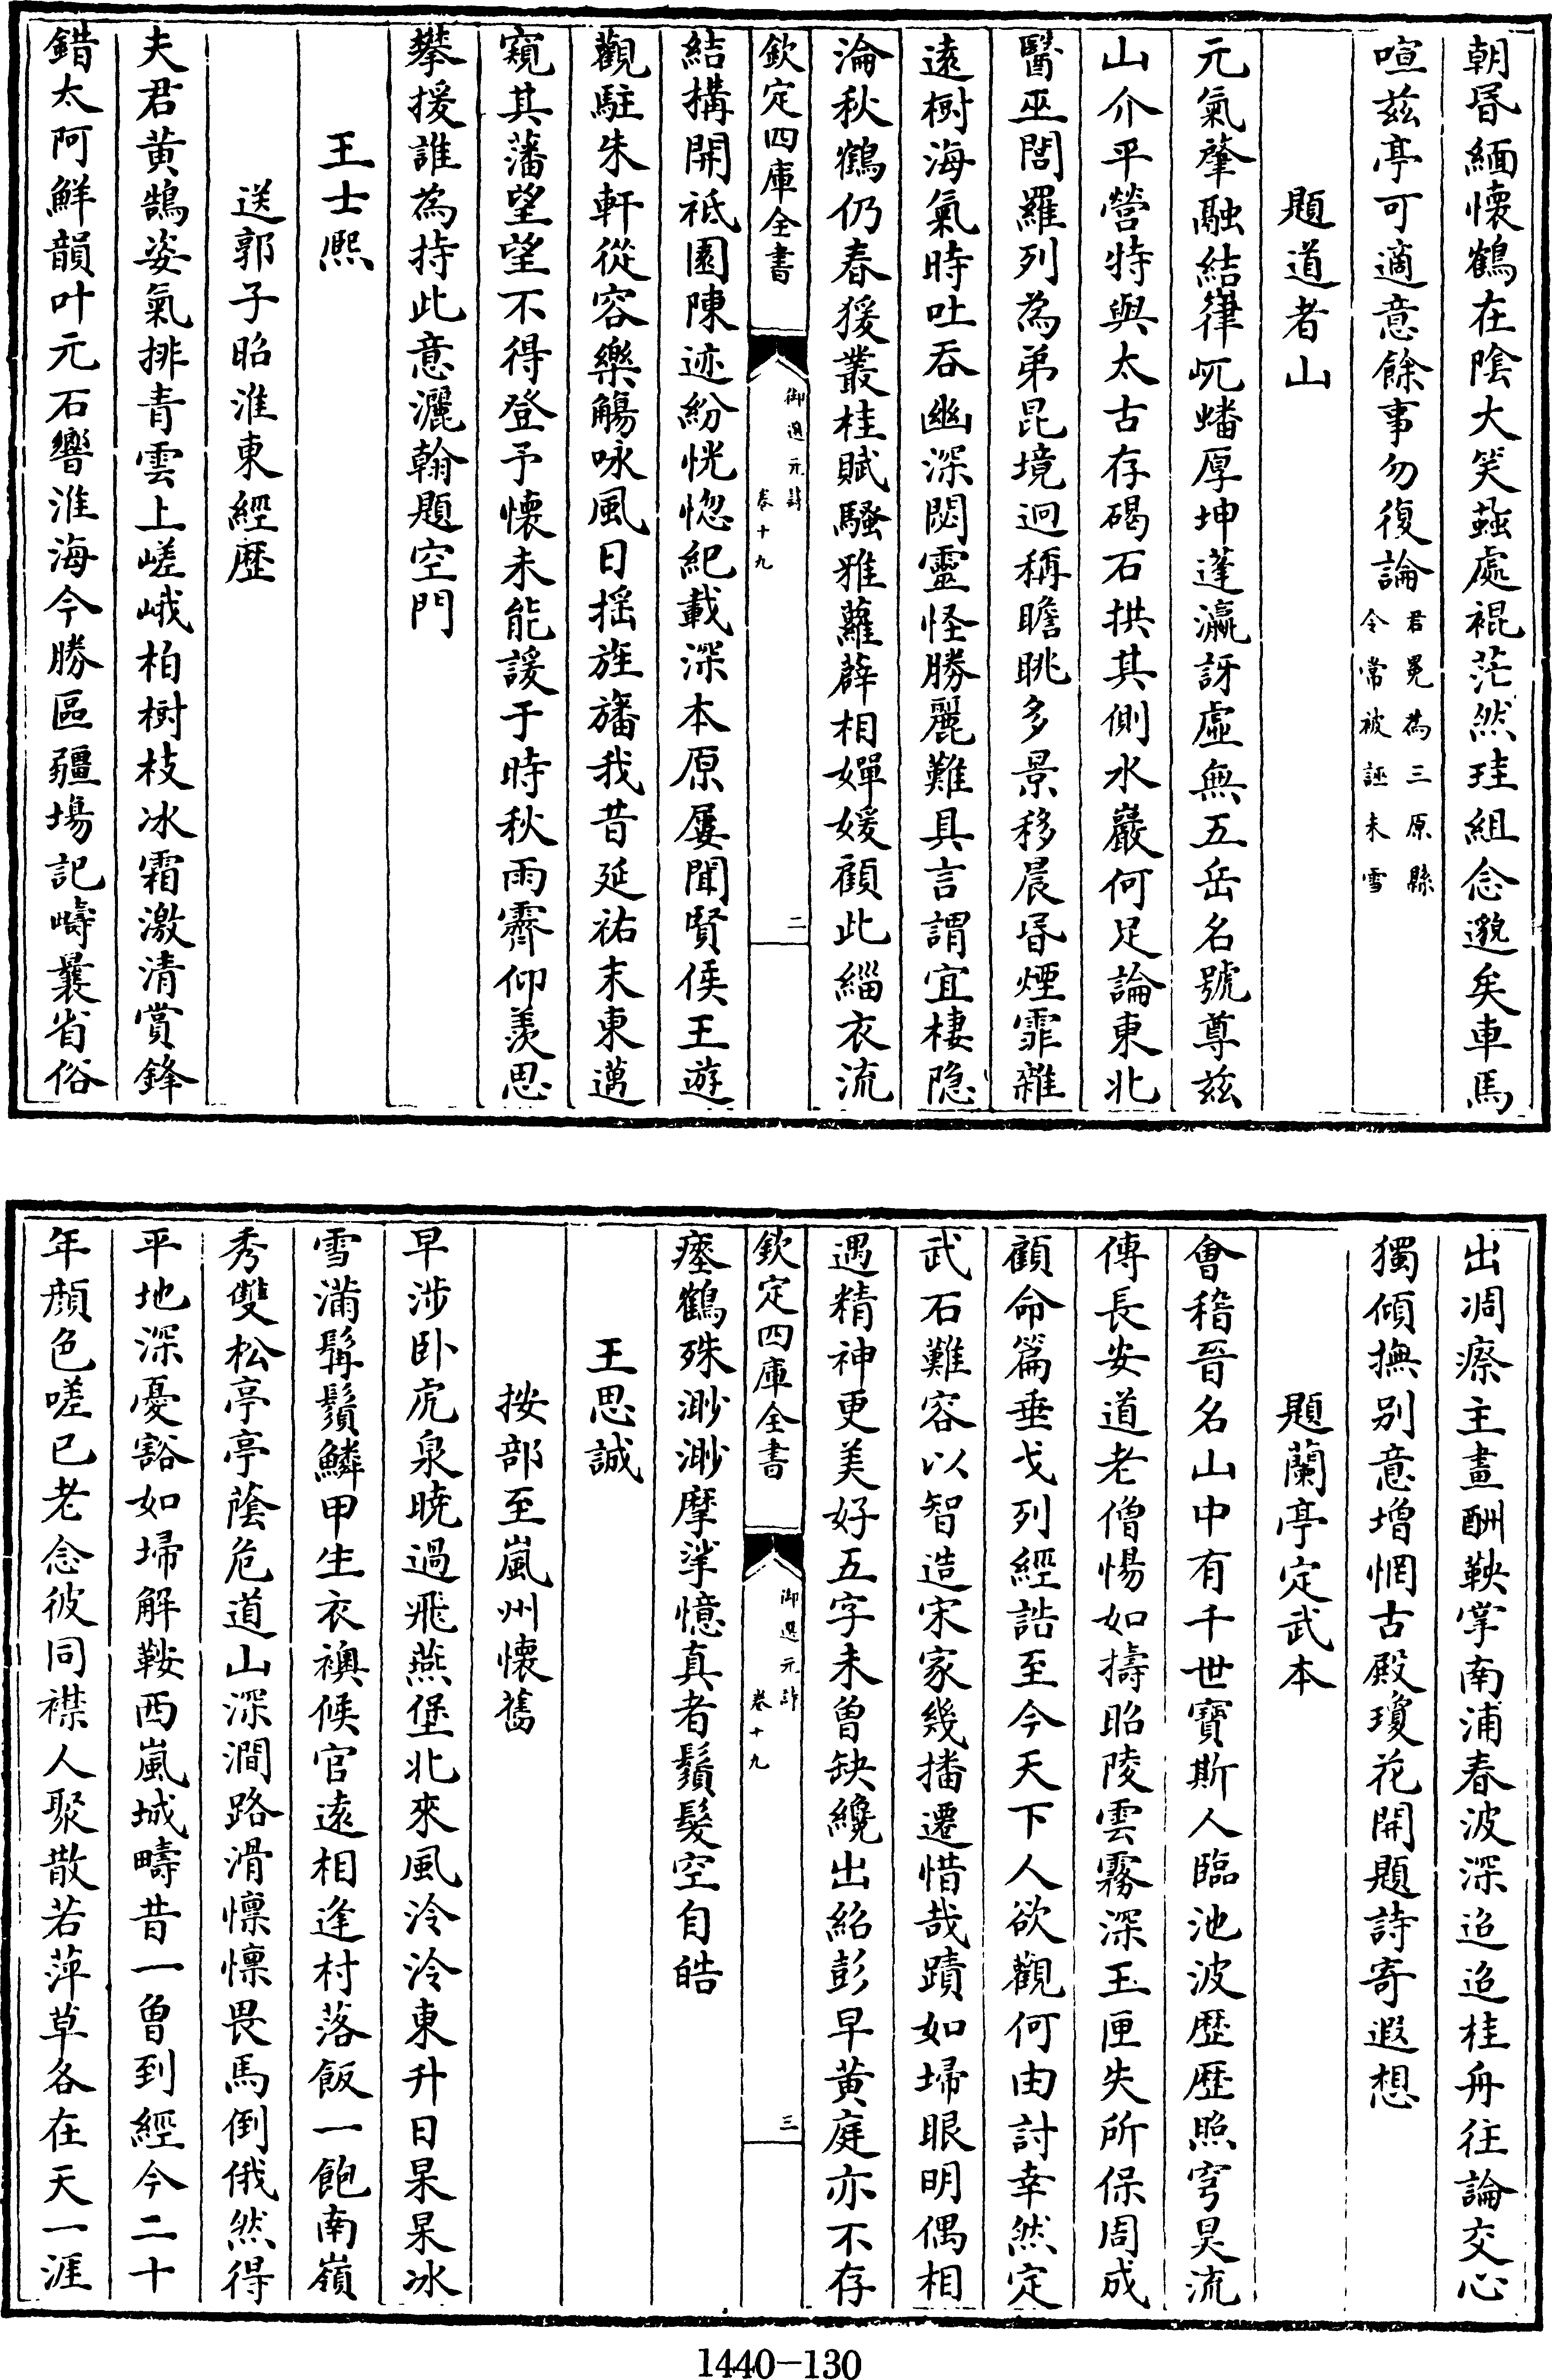 朝昏緬懷鶴在陰大笑蝨處裩茫然珪組念邈矣車馬
喧兹亭可適意餘事勿復論君冕為三原縣令常被誣未雪
題道者山
元氣肇融結嵂屼蟠厚坤蓬瀛訝虛無五岳名號尊兹
山介平營特與太古存碣石拱其側水巖何足論東北
醫巫閭羅列為弟昆境迥稱瞻眺多景移晨昏煙霏雜
遠樹海氣時吐吞幽深閟靈怪勝麗難具言謂宜棲隐
淪秋鶴仍春猨叢桂賦騷雅蘿薜相嬋媛顧此緇衣流
欽定四庫全書
御選元詩
卷十九
二
結構開祗園陳迹紛恍惚紀載深本原屢聞賢侯王遊
觀駐朱軒從容樂觴咏風日揺旌旛我昔延祐末東邁
窺其藩望望不得登予懷未能諼于時秋雨霽仰羨思
攀援誰為持此意灑翰題空門
王士熙
送郭子昭淮東經歷
夫君黄鵠姿氣排青雲上嵯峨柏樹枝冰霜激清賞鋒
錯太阿鮮韻叶元石響淮海今勝區疆場記疇曩省俗
出凋瘵主畫酬鞅掌南浦春波深迢迢桂舟往論交心
獨傾撫别意增惘古殿瓊花開題詩寄遐想
題蘭亭定武本
會稽晉名山中有千世寶斯人臨池波歷歷照穹昊流
傳長安道老僧惕如擣昭陵雲霧深玉匣失所保周成
顧命篇垂戈列經誥至今天下人欲觀何由討幸然定
武石難容以智造宋家幾播遷惜哉蹟如埽眼明偶相
遇精神更美好五字未曾缺纔出紹彭早黄庭亦不存
欽定四庫全書
御選元詩
卷十九
三
瘞鶴殊渺渺摩挲憶真者鬚髮空自皓
王思誠
按部至嵐州懷舊
早涉卧虎泉曉過飛燕堡北來風泠泠東升日杲杲冰
雪滿髯鬚鱗甲生衣襖候官遠相逢村落飯一飽南嶺
秀雙松亭亭蔭危道山深澗路滑懍懍畏馬倒俄然得
平地深憂豁如埽解鞍西嵐城疇昔一曾到經今二十
年顔色嗟已老念彼同襟人聚散若萍草各在天一涯
1440-130